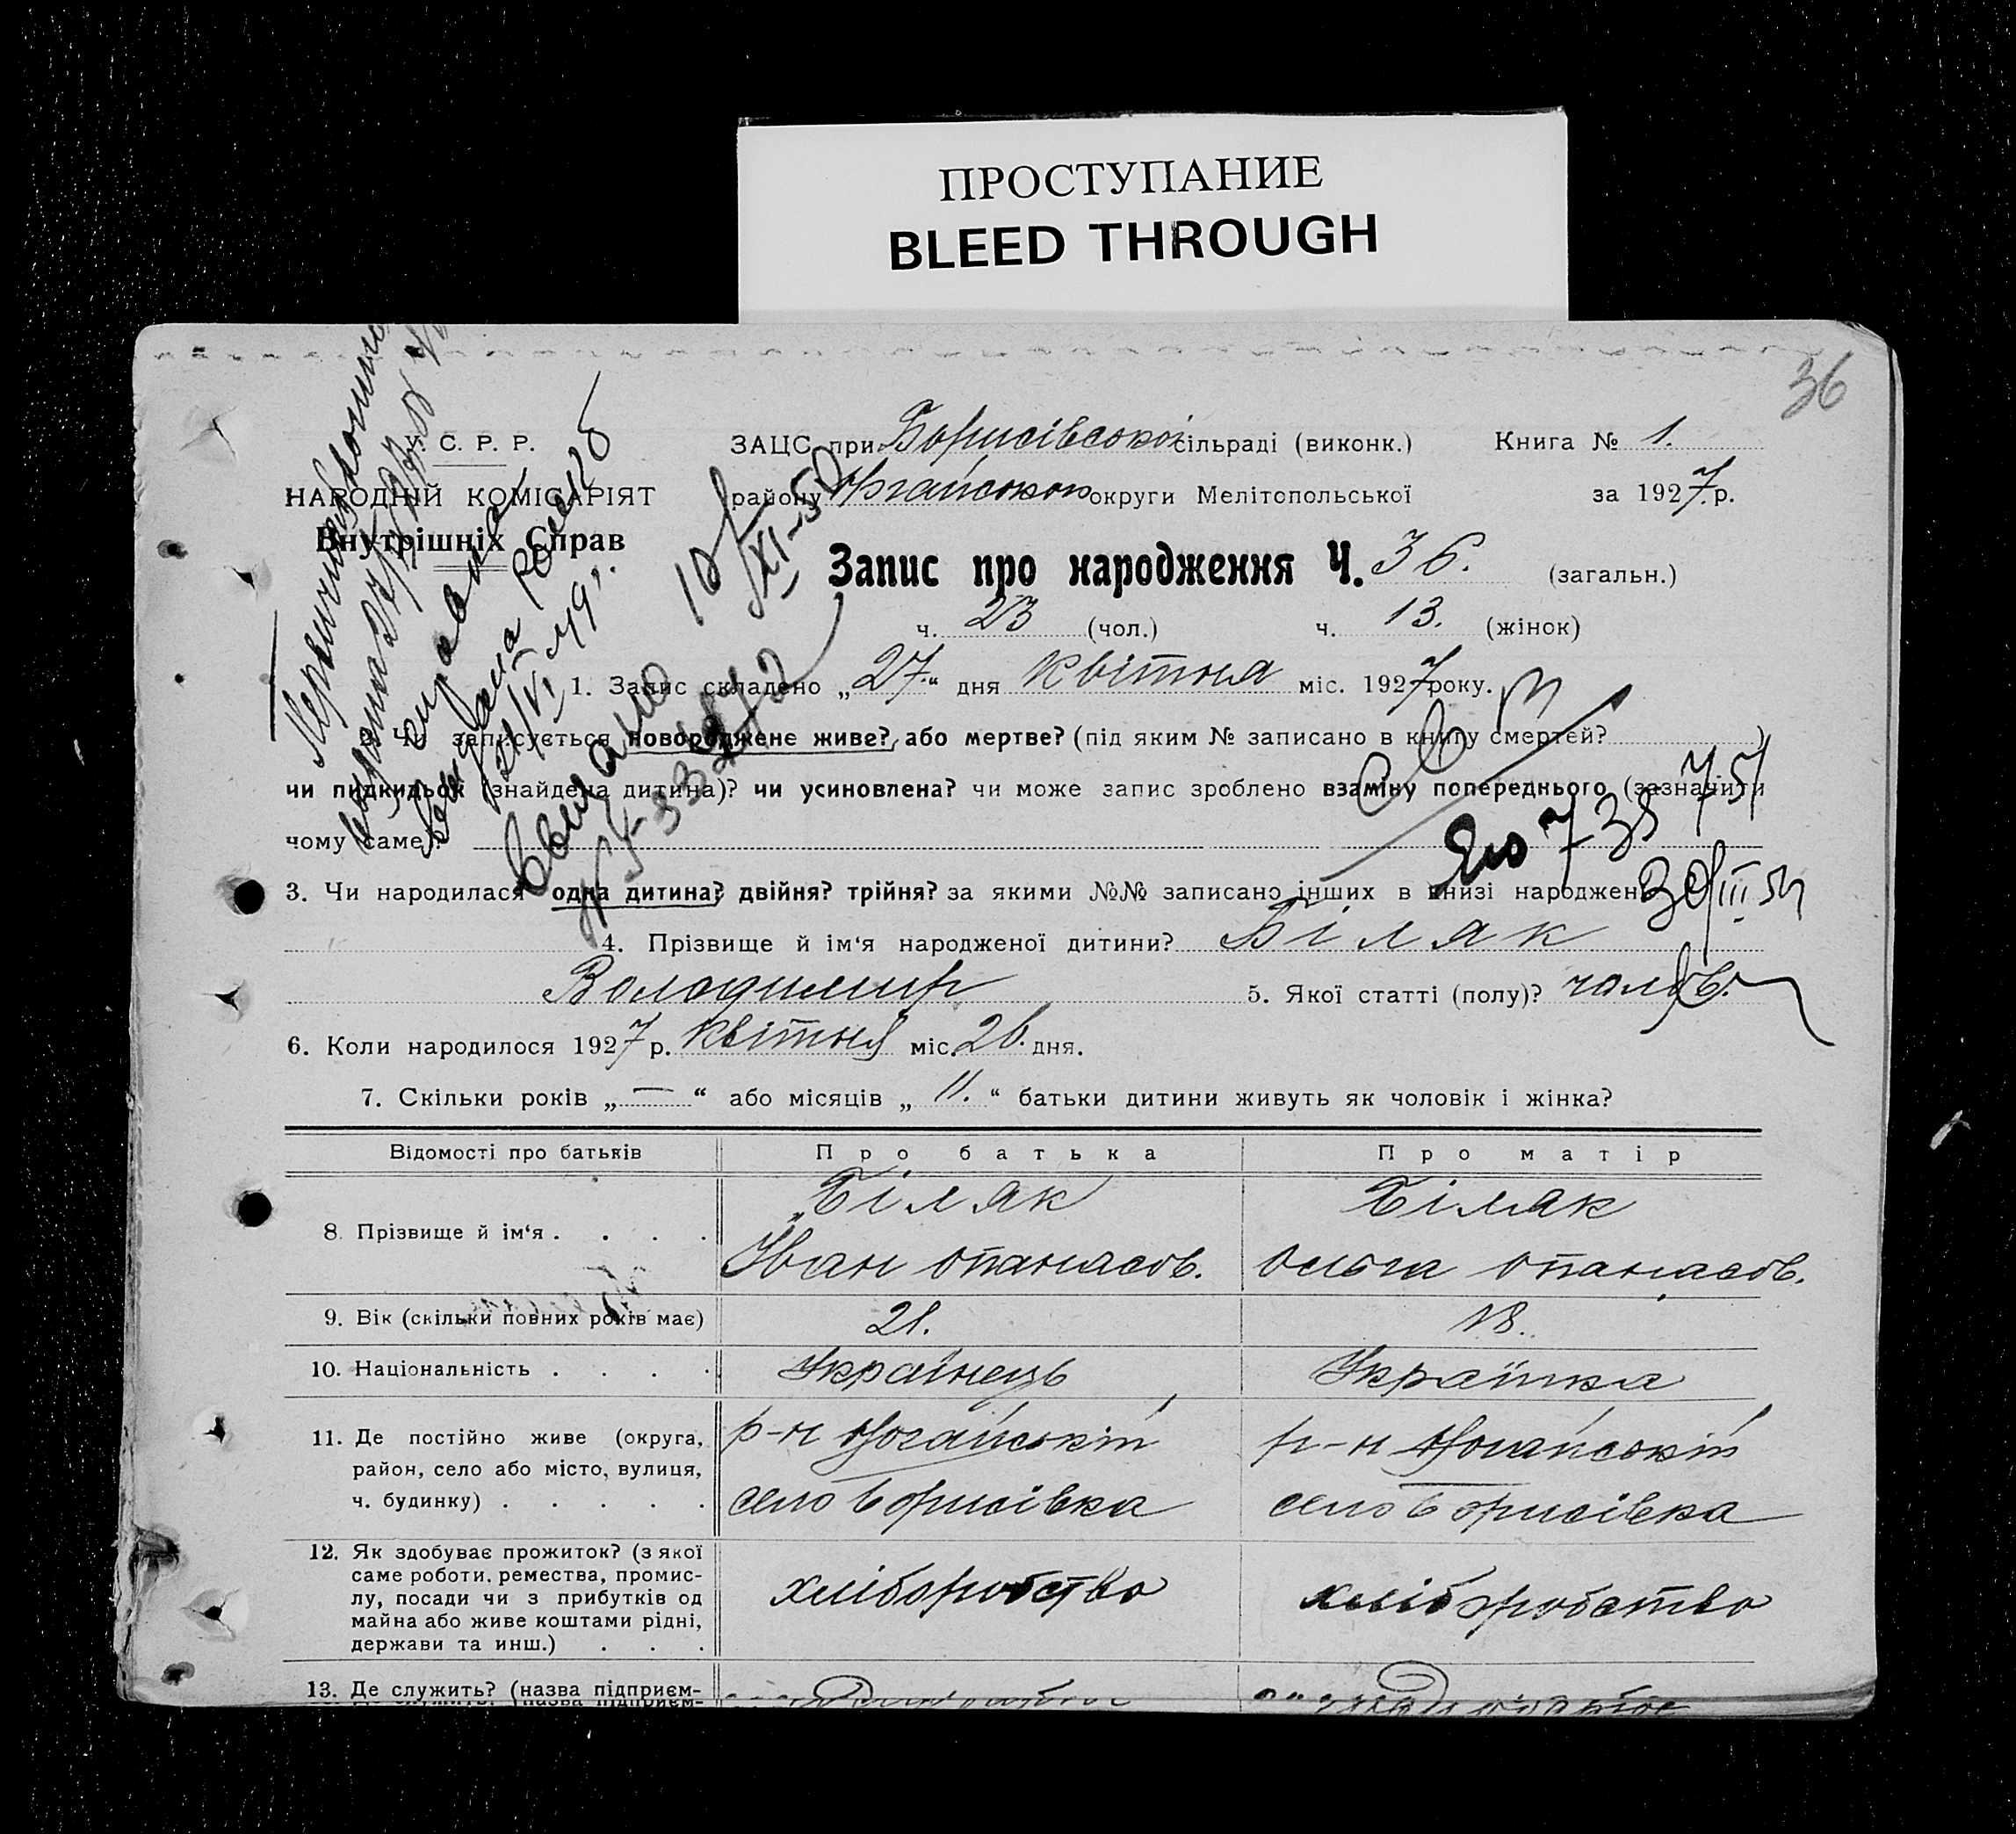 ПРОСТУПАНИЕ
BLEED THROUGH
36
У. С. Р. Р.
НАРОДНІЙ КОМІСАРІЯТ
Внутрішніх Справ
ЗАЦС при Борисівської сільраді (виконк.) Книга № 1.
району округи Мелітопольської за 1927 р.
Запис про народження Ч. 36. (загальн.)
ч. 23 (чол.) ч. 13. (жінок)
1. Запис складено „27.“ дня квітня міс. 1927 року.
2. Чи записується новороджене живе? або мертве? (під яким № записано в книгу смертей? )
чи пидкидьок (знайдена дитина)? чи усиновлена? чи може запис зроблено взаміну попереднього (зазначити
чому саме)?
3. Чи народилася одна дитина? двійня? трійня? за якими №№ записано інших в книзі народжень
4. Прізвище й ім‘я народженої дитини? Біляк
Володимир 5. Якої статті (полу)? чолов.
6. Коли народилося 1927 р. квітня міс. 26. дня.
7. Скільки років „—“ або місяців „11.“ батьки дитини живуть як чоловік і жінка?
Відомості про батьків Про батька Про матір
8. Прізвище й ім‘я . . . . Біляк Біляк
Іван Опанасов. Ольга Опанасов.
9. Вік (скільки повних років має) 21. 18.
10. Національність . . . . Українець Українка
11. Де постійно живе (округа, р-н Ногайськіт р-н Ногайськіт
район, село або місто, вулиця,
ч. будинку) . . . . . село Борисівка село Борисівка
12. Як здобуває прожиток? (з якої
саме роботи, ремества, промис-
лу, посади чи з прибутків од хліборобство хліборобство
майна або живе коштами рідні,
держави та инш.) . . .
13. Де служить? (назва підприєм-